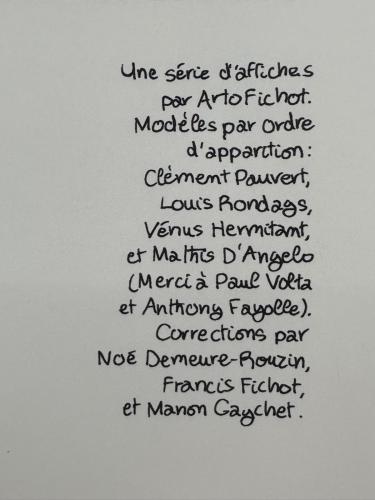 Une série d'affiches
par Arto Fichot.
Modèles par ordre
d'apparition:
Clément Pauvert,
Louis Rondags,
Vénus Hermitant,
et Mathis D'Angelo
(Merci à Paul Volta
et Anthony Fayolle).
Corrections par
Noé Demeure-Rouzin,
Francis Fichot,
et Manon Gaychet.